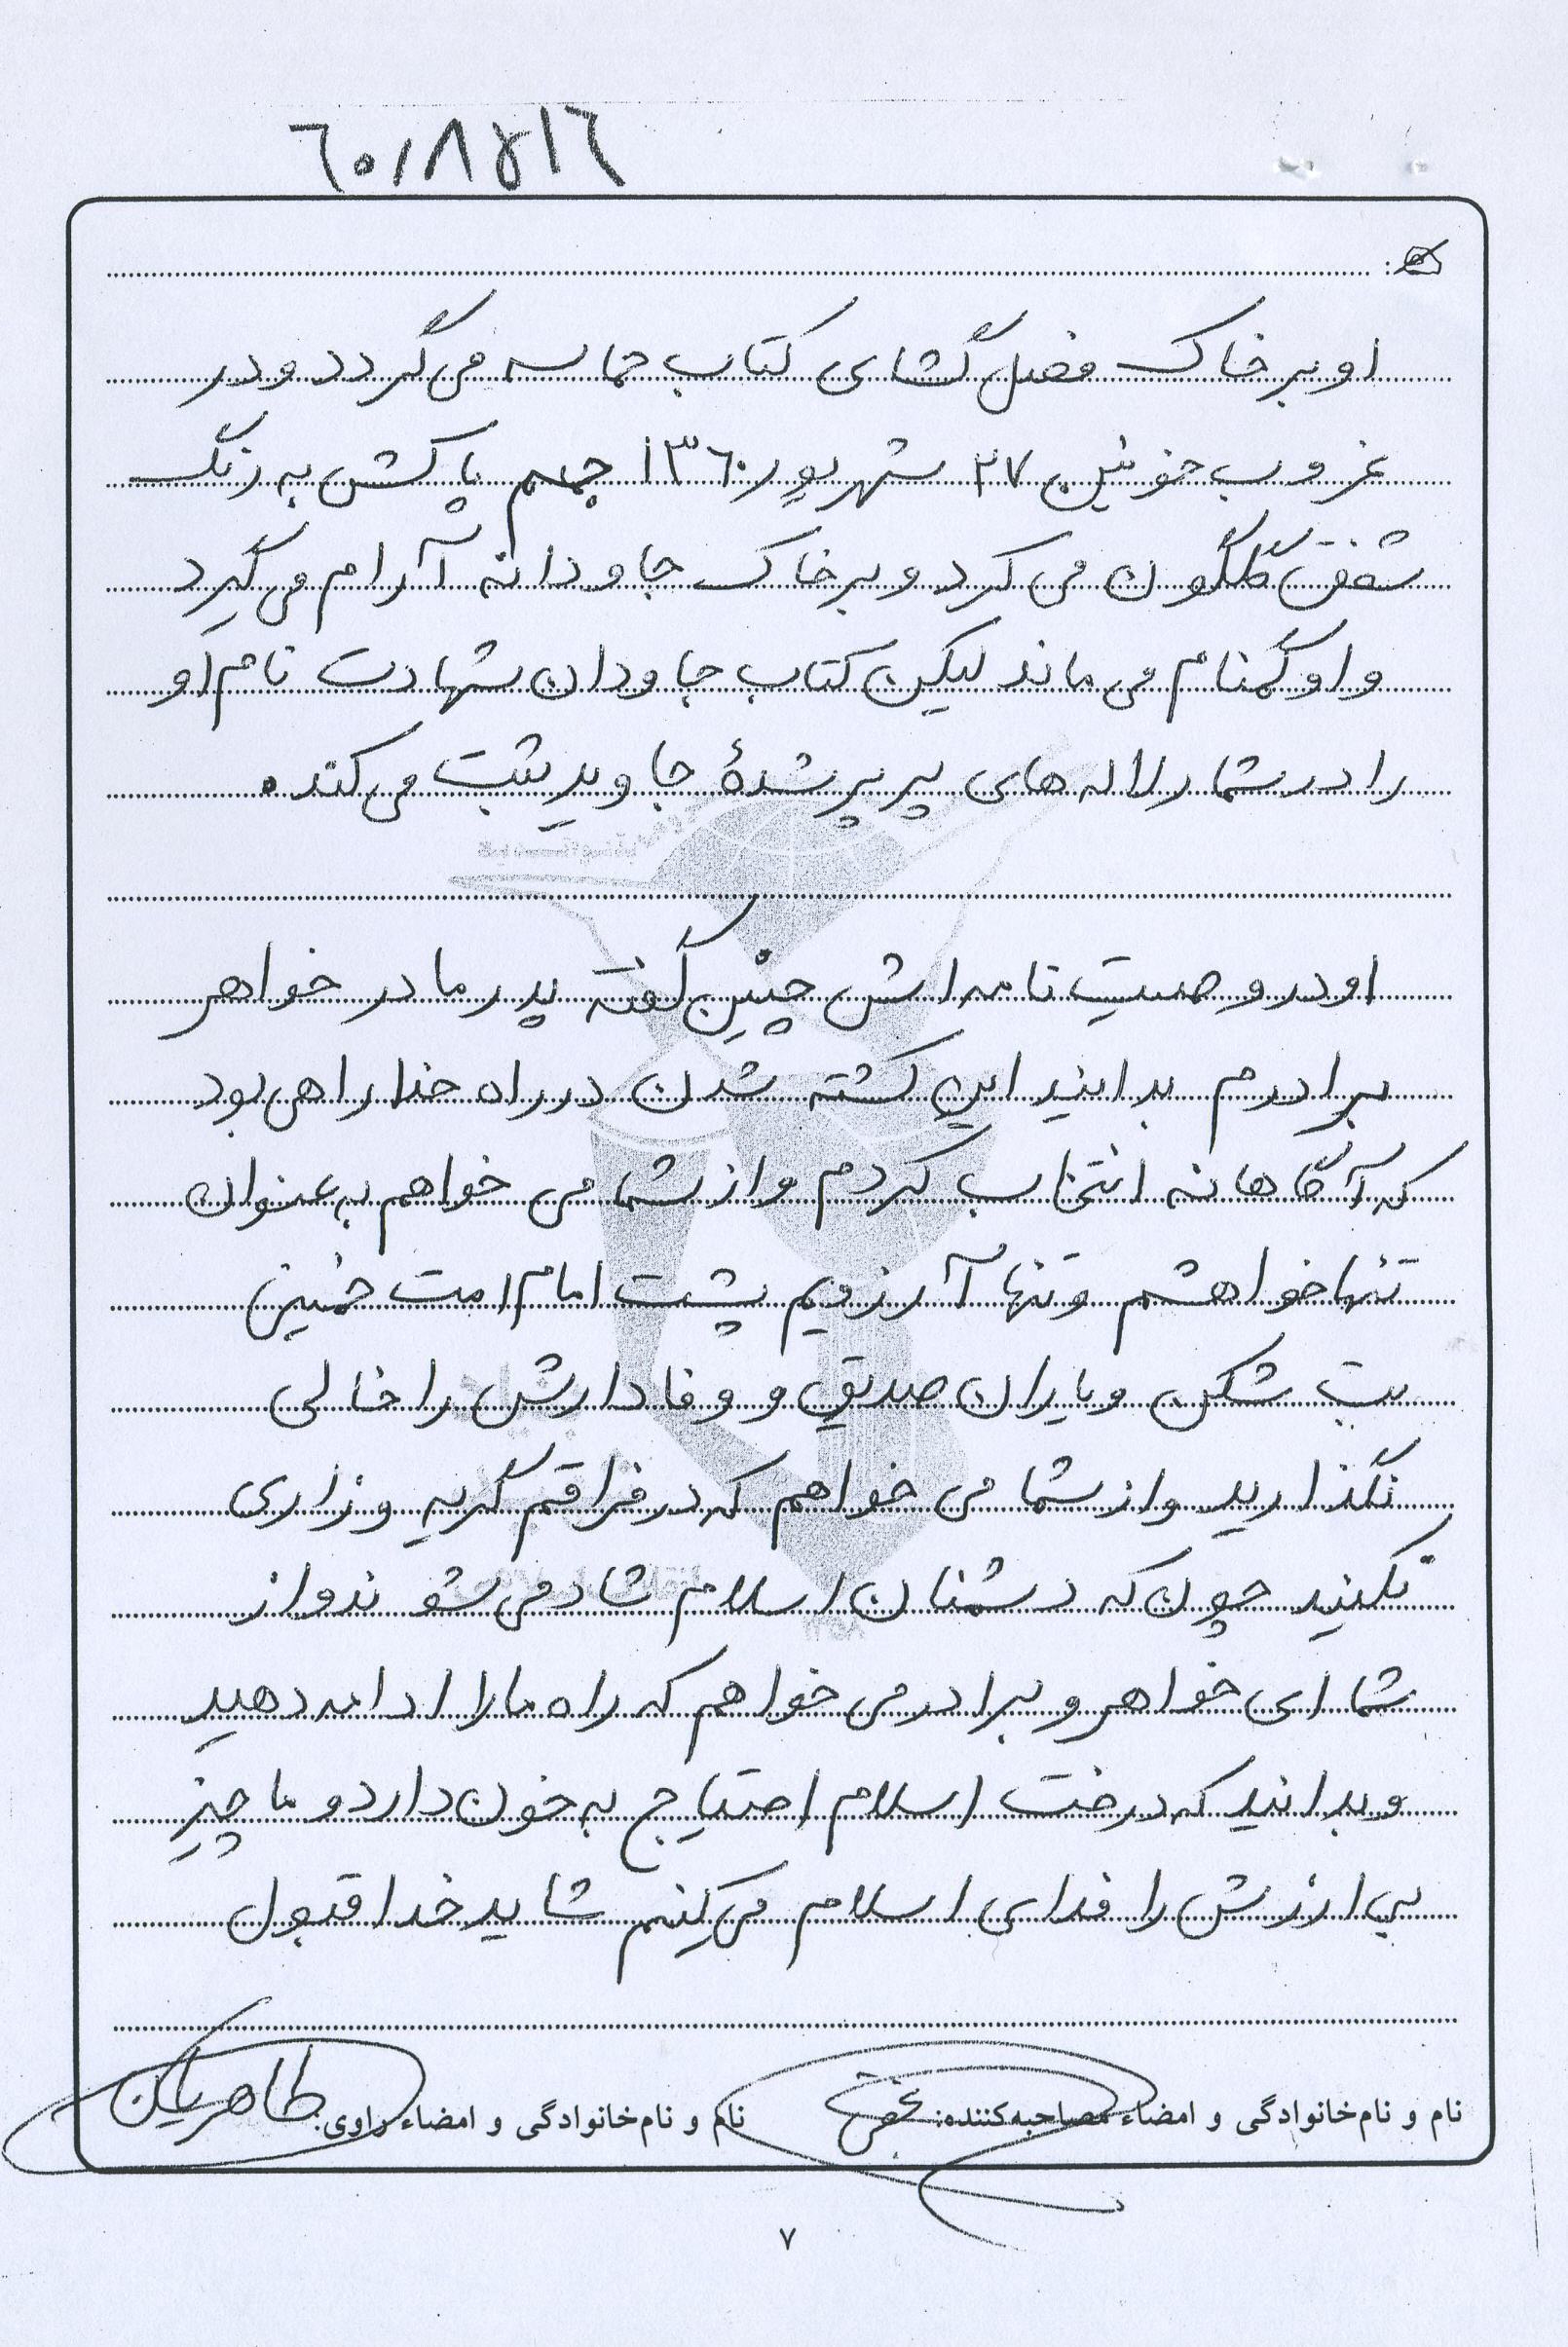 ۶۰۱۸۵۱۶
او بر خاک فصل گشای کتاب حماسه می گردد و در
غروب خونین ۲۷ شهریور ۱۳۶۰ جسم پاکش به رنگ
شفق گلگون می گرد و بر خاک جاودانه آرام می گیرد
و او گمنام می ماند لیکن کتاب جاودان شهادت نام او
را در شمار لاله های پرپر شدهٔ جاوید ثبت می کند.
او در وصیت نامه اش چنین گفته پدر مادر خواهر
برادرم بدانید این کشته شدن در راه خدا راهی بود
که آگاهانه انتخاب کردم و از شما می خواهم به عنوان
تنها خواهشم و تنها آرزویم پشت امام امت خمینی
بت شکن و یاران صدیق و وفادارش را خالی
نگذارید و از شما می خواهم که در فراقم گریه و زاری
نکنید چون که دشمنان اسلام شاد می شوند و از
شما ای خواهر و برادر می خواهم که راه ما را ادامه دهید
و بدانید که درخت اسلام احتیاج به خون دارد و ما چیز
بی ارزش را فدای اسلام می کنیم شاید خدا قبول
نام و نام خانوادگی و امضاء مصاحبه کننده: نام و نام خانوادگی و امضاء راوی: طاهریان
۷